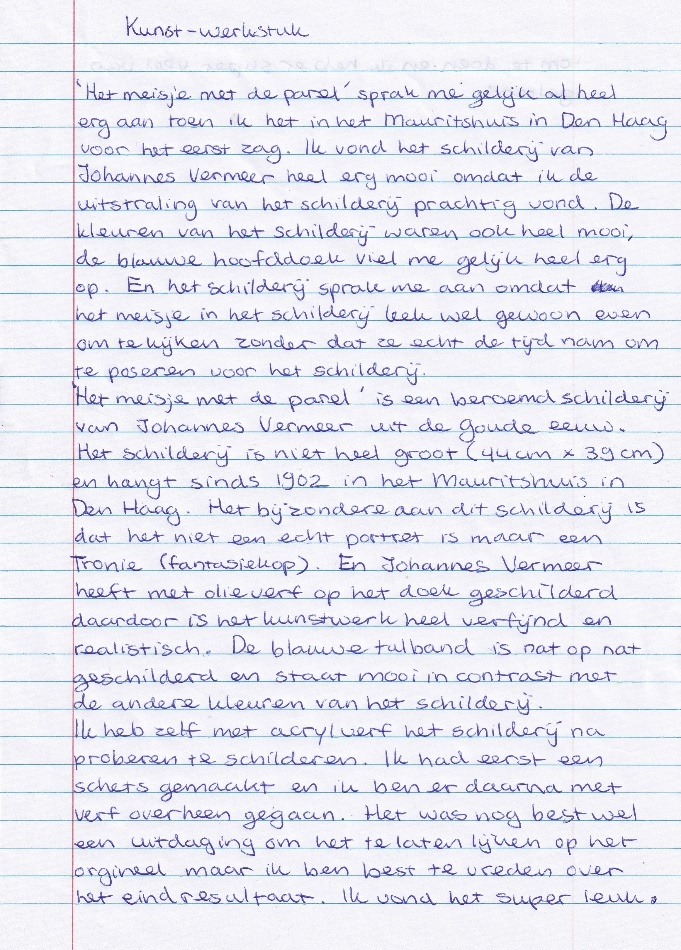 Kunst-werkstuk
'Het meisje met de parel' sprak me gelijk al heel
erg aan toen ik het in het Mauritshuis in Den Haag
voor het eerst zag. Ik vond het schilderij van
Johannes Vermeer heel erg mooi omdat ik de
uitstraling van het schilderij prachtig vond. De
kleuren van het schilderij waren ook heel mooi,
de blauwe hoofddoek viel me gelijk heel erg
op. En het schilderij sprak me aan omdat
het meisje in het schilderij leek wel gewoon even
om te kijken zonder dat ze echt de tijd nam om
te poseren voor het schilderij.
'Het meisje met de parel' is een beroemd schilderij
van Johannes Vermeer uit de goude eeuw.
Het schilderij is niet heel groot (44cm x 39cm)
en hangt sinds 1902 in het Mauritshuis in
Den Haag. Het bijzondere aan dit schilderij is
dat het niet een echt portret is maar een
Tronie (fantasiekop). En Johannes Vermeer
heeft met olieverf op het doek geschilderd
daardoor is het kunstwerk heel verfijnd en
realistisch. De blauwe tulband is nat op nat
geschilderd en staat mooi in contrast met
de andere kleuren van het schilderij.
Ik heb zelf met acrylverf het schilderij na
proberen te schilderen. Ik had eerst een
schets gemaakt en ik ben er daarna met
verf overheen gegaan. Het was nog best wel
een uitdaging om het te laten lijken op het
orgineel maar ik ben best te vreden over
het eindresultaat. Ik vond het super leuk.